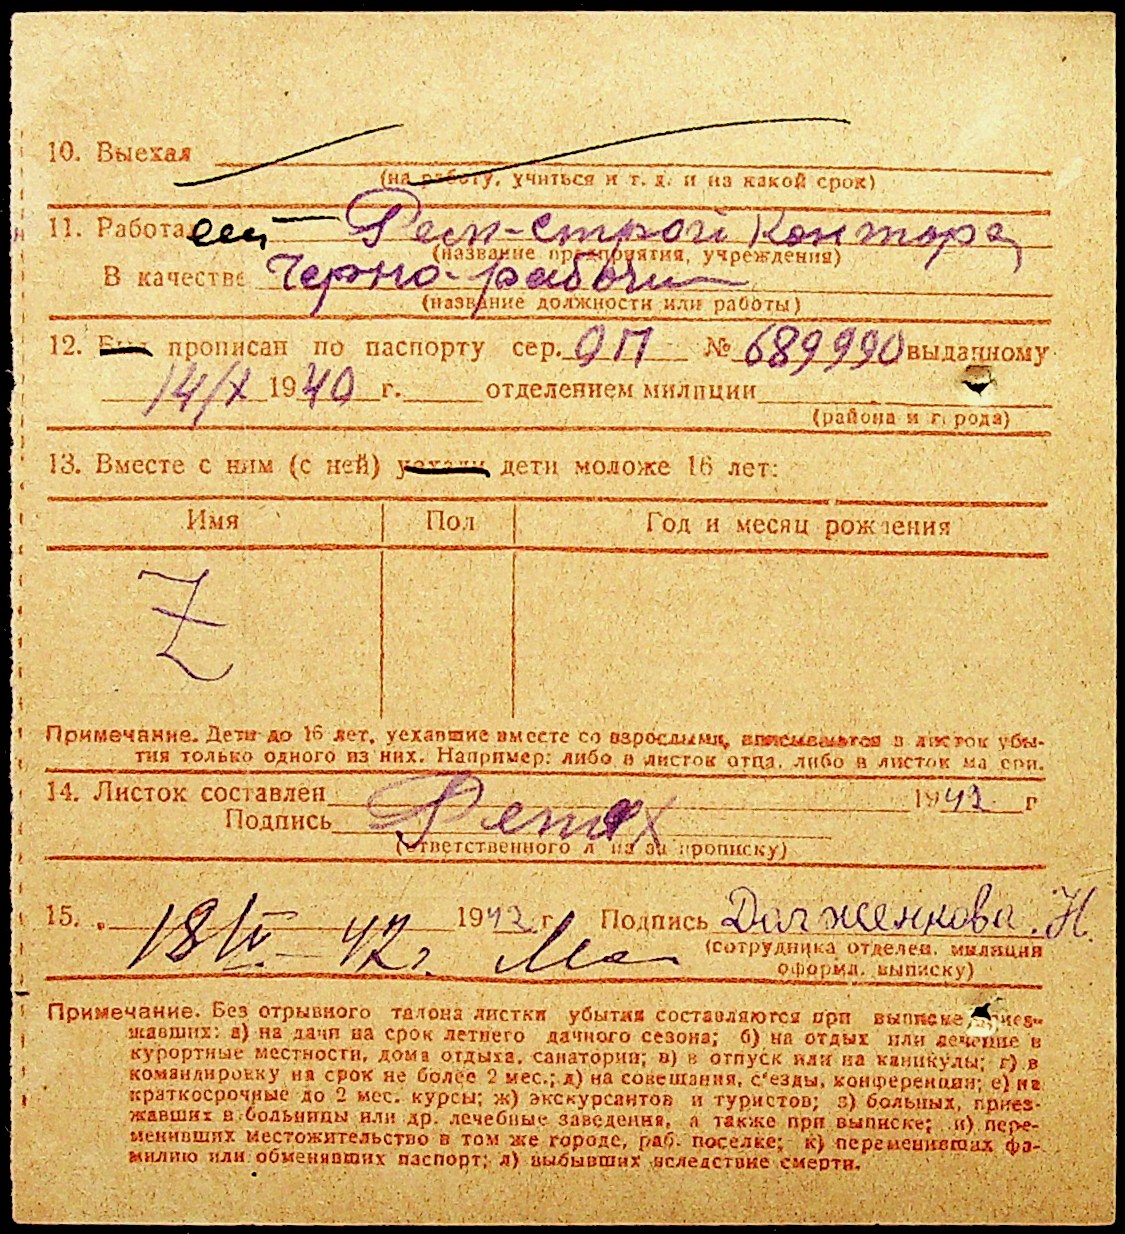 10. Выехал
(на работу, учиться и т. д. и на какой срок)
11. Работает Рем-строй контора
(название предприятия, учреждения)
В качестве Черно-рабочий
(название должности или работы)
12. Был прописан по паспорту сер. ОП № 689990 выданному
14/X 1940 г. отделением милиции
(района и города)
13. Вместе с ним (с ней) уехали дети моложе 16 лет:
Имя Пол Год и месяц рождения
Z
Примечание. Дети до 16 лет, уехавшие вместе со взрослыми, вписываются в листок убы-
тия только одного из них. Например: либо в листок отца, либо в листок ма ери.
14. Листок составлен 1942 г
Подпись
(ответственного л на за прописку)
15. 18/IV-42г. 1942 г. Подпись Долженкова.Н.
(сотрудника отделен. милиции
оформл. выписку)
Примечание. Без отрывного талона листки убытия составляются при выписке приез-
жавших: а) на дачи на срок летнего дачного сезона; б) на отдых или лечение в
курортные местности, дома отдыха, санатории; в) в отпуск или на каникулы; г) в
командировку на срок не более 2 мес.; д) на совещания, с'езды, конференции; е) на
краткосрочные до 2 мес. курсы; ж) экскурсантов и туристов; з) больных, приез-
жавших в больницы или др. лечебные заведения, а также при выписке; и) пере-
менивших местожительство в том же городе, раб. поселке; к) переменивших фа-
милию или обменявших паспорт; л) выбывших вследствие смерти.